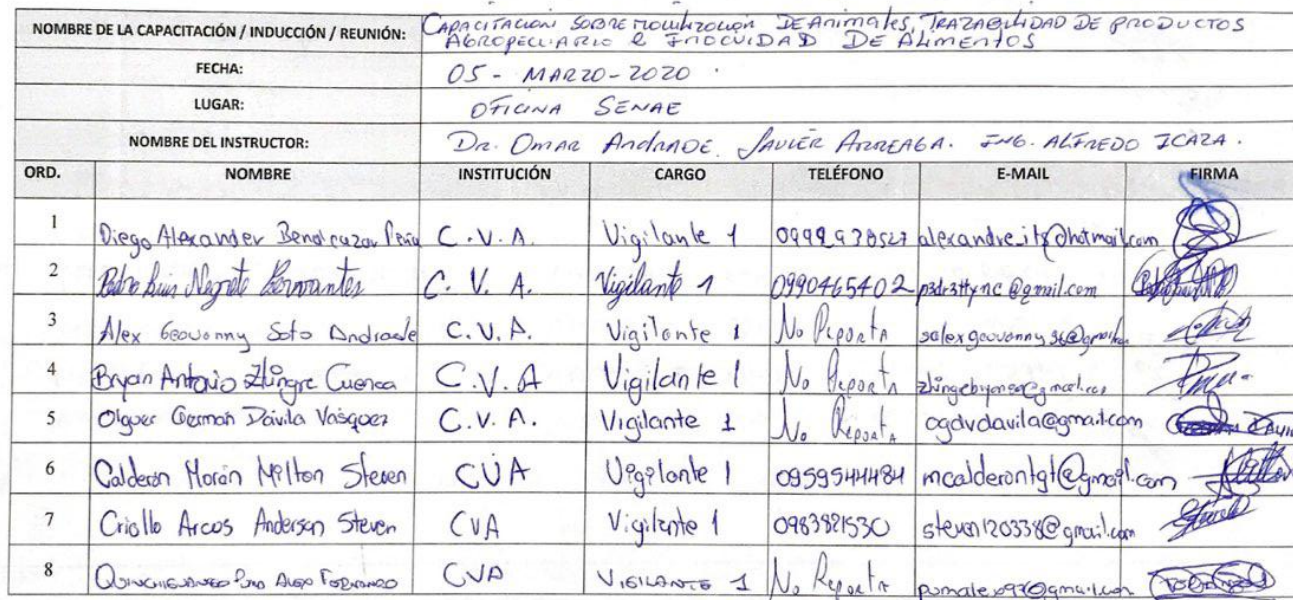 NOMBRE DE LA CAPACITACIÓN / INDUCCIÓN / REUNIÓN: CAPACITACION SOBRE MOVILIZACION DE Animales, TRAZABILIDAD DE PRODUCTOS
AGROPECUARIO e INOCUIDAD DE ALIMENTOS
FECHA: 05 - MARZO - 2020
LUGAR: OFICINA SENAE
NOMBRE DEL INSTRUCTOR: DR. OMAR AndRADE. JAVIER ARREAGA. ING. ALFREDO ICAZA.
ORD. NOMBRE INSTITUCIÓN CARGO TELÉFONO E-MAIL FIRMA
1 Diego Alexander Benalcazar Peña C.V.A. Vigilante 1
2 Pedro Luis Negrete Cervantes C.V.A. Vigilante 1 0990465402
3 Alex Geovonny Soto Andrade C.V.A. Vigilante 1 No Reporta
4 Bryan Antonio Zhingre Cuenca C.V.A Vigilante 1 No Reporta
5 Olguer German Dávila Vásquez C.V.A. Vigilante 1 No Reporta ogdvdavila@gmail.com
6 Calderón Morán Milton Steven CVA Vigilante 1 0959544484 mcalderontgt@gmail.com
7 Criollo Arcos Anderson Steven CVA Vigilante 1 0983821530 steven120338@gmail.com
8 CVA VIGILANTE 1 No Reporta